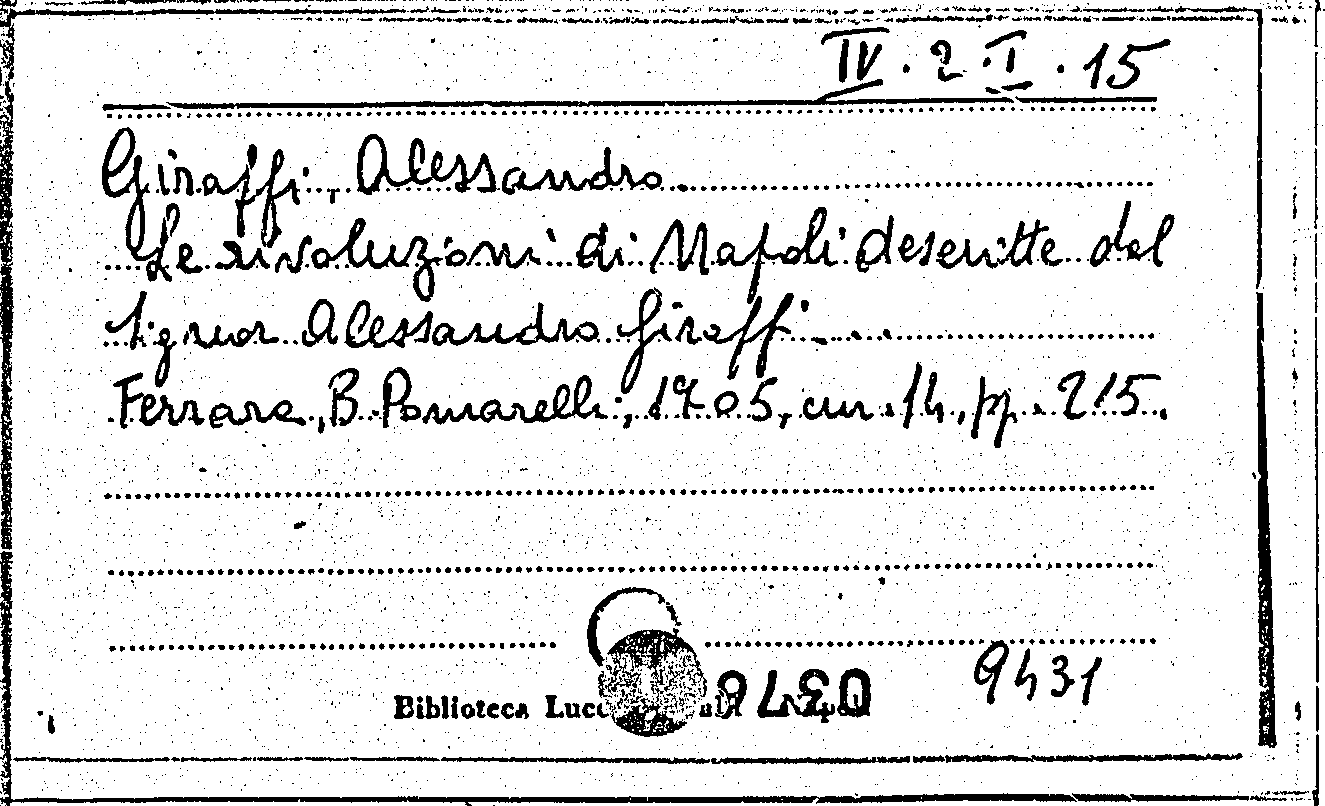 IV.2.I.15
Giraffi, Alessandro.
Le rivoluzioni di Napoli descritte dal
signor Alessandro Giraffi...
Ferrara, B. Pomarelli, 1705, cm. 14, pp. 215.
9431
Biblioteca